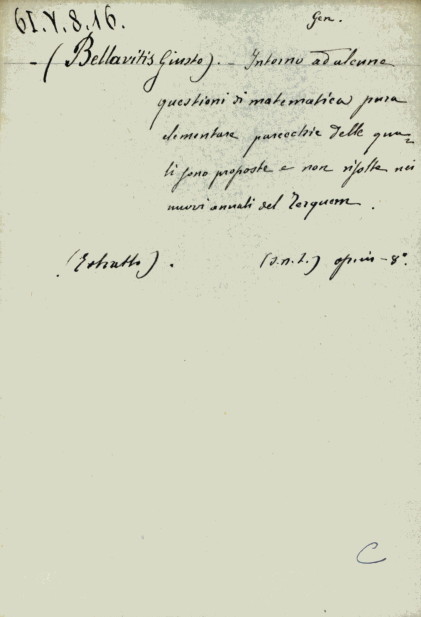 61.V.8.16.
Gen.
- (Bellavitis Giusto). - Intorno ad alcune
questioni di matematica pura
elementare parecchie delle qua-
li sono proposte e non risolte nei
nuovi annali del Terquem.
(Estratto). (s.n.t.) op. in-8°.
C